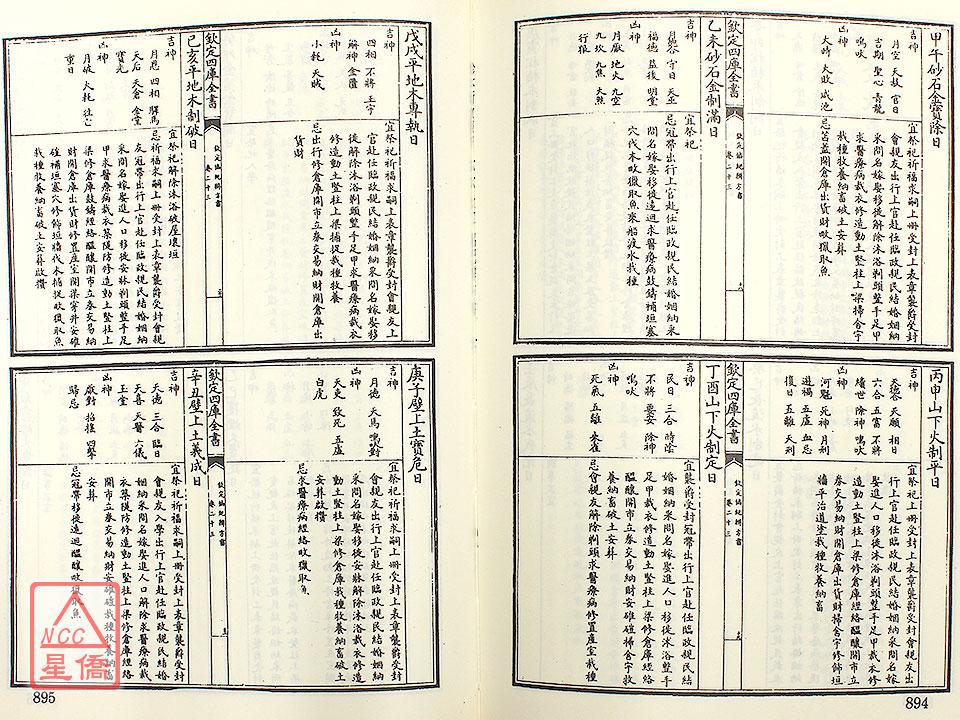 甲午砂石金寶除日
吉神
月空 天赦 官日
吉期 聖心 青龍
鳴吠
凶神
大時 大敗 咸池
宜祭祀祈福求嗣上冊受封上表章襲爵受封
會親友出行上官赴任臨政親民結婚姻納
采問名嫁娶移徙解除沐浴剃頭整手足甲
求醫療病裁衣修造動土豎柱上梁掃舍宇
栽種牧養納畜破土安葬
忌苫蓋開倉庫出貨財畋獵取魚
欽定四庫全書
欽定協紀辨方書
卷二十三
乙未砂石金制滿日
吉神
月恩 守日 天巫
福德 益後 明堂
凶神
月厭 地火 九空
九坎 九焦 大煞
行狼
宜祭祀
忌冠帶出行上官赴任臨政親民結婚姻納采
問名嫁娶移徙遠迴求醫療病鼓鑄補垣塞
穴伐木畋獵取魚乘船渡水栽種
丙申山下火制平日
吉神
天恩 天願 相日
六合 五富 不將
續世 除神 鳴吠
凶神
河魁 死神 月刑
遊禍 五虛 血忌
復日 五離 天刑
宜祭祀上冊受封上表章襲爵受封會親友出
行上官赴任臨政親民結婚姻納采問名嫁
娶進人口移徙沐浴剃頭整手足甲裁衣修
造動土豎柱上梁修倉庫經絡醞釀開市立
券交易納財開倉庫出貨財掃舍宇修飾垣
牆平治道塗栽種牧養納畜
欽定四庫全書
欽定協紀辨方書
卷二十三
丁酉山下火制定日
吉神
民日 三合 時陰
不將 要安 除神
鳴吠
凶神
死氣 五離 朱雀
宜襲爵受封冠帶出行上官赴任臨政親民結
婚姻納采問名嫁娶進人口移徙沐浴整手
足甲裁衣修造動土豎柱上梁修倉庫經絡
醞釀開市立券交易納財安碓磑掃舍宇牧
養納畜破土安葬
忌會親友解除剃頭求醫療病修置產室栽種
894
戊戌平地木專執日
吉神
四相 不將 玉宇
解神 金匱
凶神
小耗 天賊
宜祭祀祈福求嗣上表章襲爵受封會親友上
官赴任臨政親民結婚姻納采問名嫁娶移
徙解除沐浴剃頭整手足甲求醫療病裁衣
修造動土豎柱上梁捕捉栽種牧養
忌出行修倉庫開市立券交易納財開倉庫出
貨財
欽定四庫全書
欽定協紀辨方書
卷二十三
己亥平地木制破日
吉神
月恩 四相 驛馬
天后 天倉 金堂
寶光
凶神
月破 大耗 往亡
重日
宜祭祀解除沐浴破屋壞垣
忌祈福求嗣上冊受封上表章襲爵受封會親
友冠帶出行上官赴任臨政親民結婚姻納
采問名嫁娶進人口移徙安牀剃頭整手足
甲求醫療病裁衣築隄防修造動土豎柱上
梁修倉庫鼓鑄經絡醞釀開市立券交易納
財開倉庫出貨財修置產室開渠穿井安碓
磑補垣塞穴修飾垣牆伐木捕捉畋獵取魚
栽種牧養納畜破土安葬啟攢
庚子壁上土寶危日
吉神
月德 天馬 鳴吠對
凶神
天吏 致死 五虛
白虎
宜祭祀祈福求嗣上冊受封上表章襲爵受封
會親友出行上官赴任臨政親民結婚姻納
采問名嫁娶移徙安牀解除沐浴裁衣修造
動土豎柱上梁修倉庫栽種牧養納畜破土
安葬啟攢
忌求醫療病經絡畋獵取魚
欽定四庫全書
欽定協紀辨方書
卷二十三
辛丑壁上土義成日
吉神
天德 三合 臨日
天喜 天醫 六儀
玉堂
凶神
厭對 招搖 四擊
歸忌
宜祭祀祈福求嗣上冊受封上表章襲爵受封
會親友入學出行上官赴任臨政親民結婚
姻納采問名嫁娶進人口解除求醫療病裁
衣築隄防修造動土豎柱上梁修倉庫經絡
開市立券交易納財安碓磑栽種牧養納畜
安葬
忌冠帶移徙遠迴醞釀畋獵取魚
895
NCC
星僑